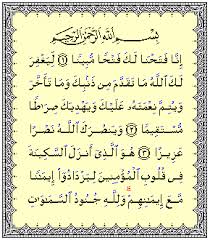 بِسْمِ اللَّهِ الرَّحْمَٰنِ الرَّحِيمِ
إِنَّا فَتَحْنَا لَكَ فَتْحًا مُّبِينًا ۝١ لِّيَغْفِرَ
لَكَ اللَّهُ مَا تَقَدَّمَ مِن ذَنۢبِكَ وَمَا تَأَخَّرَ
وَيُتِمَّ نِعْمَتَهُۥ عَلَيْكَ وَيَهْدِيَكَ صِرَٰطًا
مُّسْتَقِيمًا ۝٢ وَيَنصُرَكَ اللَّهُ نَصْرًا
عَزِيزًا ۝٣ هُوَ الَّذِىٓ أَنزَلَ السَّكِينَةَ
فِى قُلُوبِ الْمُؤْمِنِينَ لِيَزْدَادُوٓا۟ إِيمَٰنًا
مَّعَ إِيمَٰنِهِمْ ۗ وَلِلَّهِ جُنُودُ السَّمَٰوَٰتِ